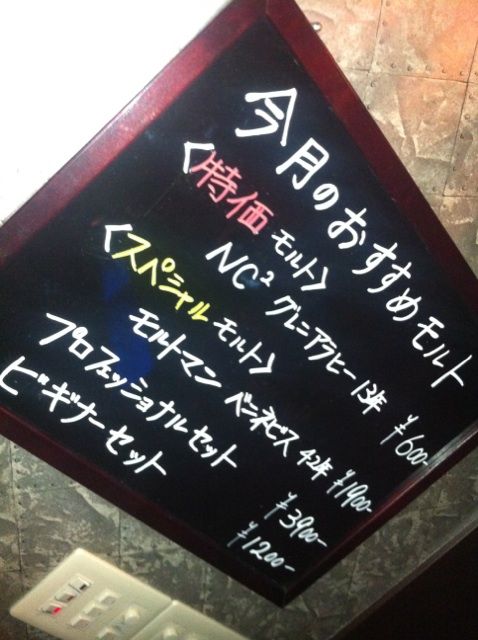 今月のおすすめモルト
〈特価モルト〉
NC² グレニアラヒー 13年 ¥600-
〈スペシャルモルト〉
モルトマン ベンネビス 42年 ¥1900-
プロフェッショナルセット ¥3900-
ビギナーセット ¥1200-